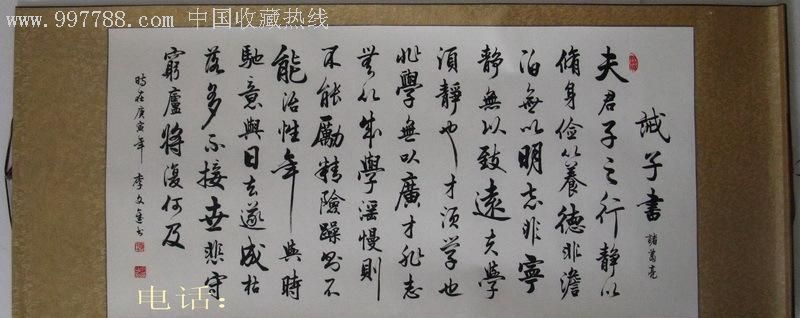 www.997788.com 中国收藏热线
誡子書
諸葛亮
夫君子之行靜以
脩身俭以養德非澹
泊無以明志非寧
靜無以致遠夫學
須靜也才須学也
非學無以廣才非志
無以成學淫慢則
不能勵精險躁則不
能治性年與時
馳意與日去遂成枯
落多不接世悲守
窮廬將復何及
時在庚寅年 李文書
电话: